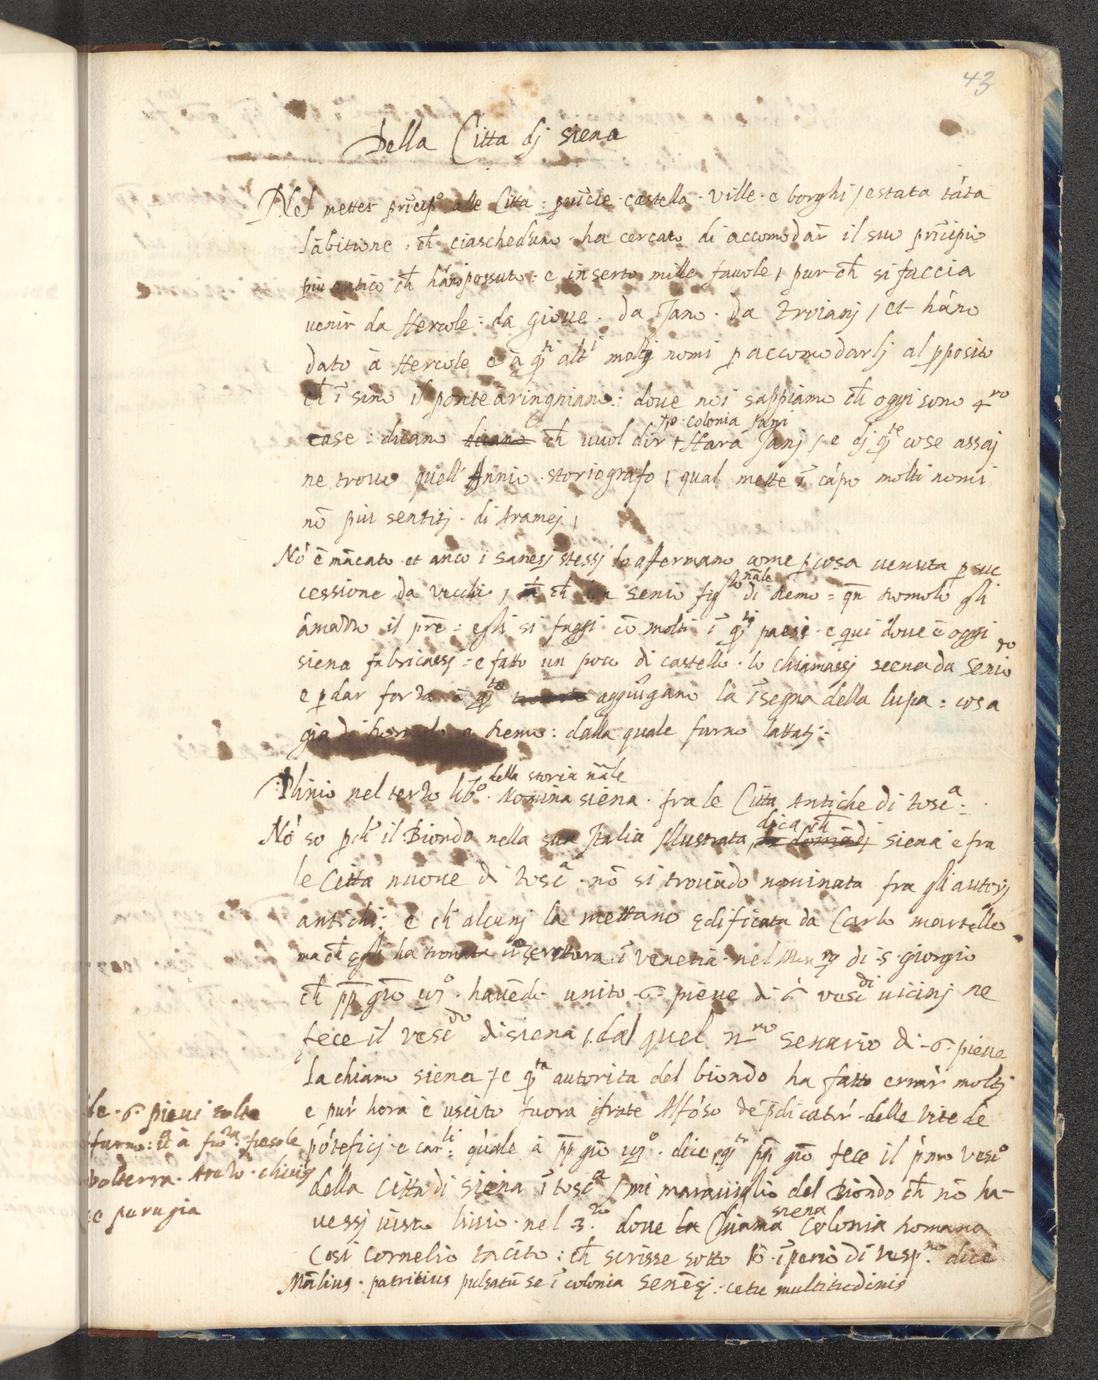 43
Della Citta dj siena
Nel metter prīcip° alle Citta : castella · ville · e borghi / e stata tāta
lābitione · ch̄ ciascheduno ha cercato di accomodār il suo prīcipio
piu antico ch̄ hāno possuto : e inserto mille favole / pur ch̄ si faccia
venir da Hercole : da giove · da Jano · da troianj / et hāno
dato à Hercole e à q̄ti altri moltj nomi p accomodarlj al pposito
ch̄ ī sino il ponte àringniano : dove noi sappiamo ch̄ oggi sono 4ro
case : dicano ch̄ vuol dir + Hara Janj / e dj q̄te cose assaj
colonia Jani
ne trova quell' Annio storiografo / qual mette ī cāpo molti nomi
nō piu sentitj · di Aramej /
Nō ē mācato et anco i sanesj stessj lo affermano come p cosa venuta p suc
cessione da vecchi / ch̄ senio figlo di Remo = qn̄ Romolo gli
nāle
āmazzo il pr̄e = egli si fuggi cō molti ī q̄to paese e qui dove ē oggi
siena fabricassj = e fatto un poco di castello · lo chiamassj seena da Senio
e p dar forza à q̄to aggiūgano la īsegna della lupa = cosa
gia di Romolo e Remo : dalla quale furno lattatj :
Plinio nel terzo lib° · Nomina siena · fra le Citta Antiche di tosca :
della storia nāle
Nō so pch̄ il Biondo nella sua Italia Illustrata siena e fra
dica ch̄
le Citta nuove di tosca · nō si trovādo nominata fra gli autorj
antichi : e ch̄ alcunj la mettano edificata da Carlo martello
ma ch̄ eglj ha trovato scrittura ī venetia · nel di S giorgio
ch̄ pp giō · havēdo unito · 6 · pieve di 6 vescdi vicinj ne
fece il vescdo di siena / dal quel nro senario di · 6 · pieve
la chiamo siena / e q̄ta autorita del biondo ha fatto errār moltj
e pur hora è uscito fuora ifrate Alfōso de pdicatōr delle vite de
pōteficj e carli : quale à pp giō · dice giō fece il pmo vesco
della Citta di siena ī tosca / mi maraviglio del Biondo ch̄ nō ha-
vessj visto livio · nel 3.° dove la Chiama Colonia Romana
siena
Cosi Cornelio tacito : ch̄ scrisse sotto īperio di vesp.no dice
Māliuſ · patritiuſ pulsatū se ī colonia senēsj · cetu multitudinis
le · 6 · pievi tolte
furno : à fiorza · fiesole
volterra · Arezo · chiusj
e perugia